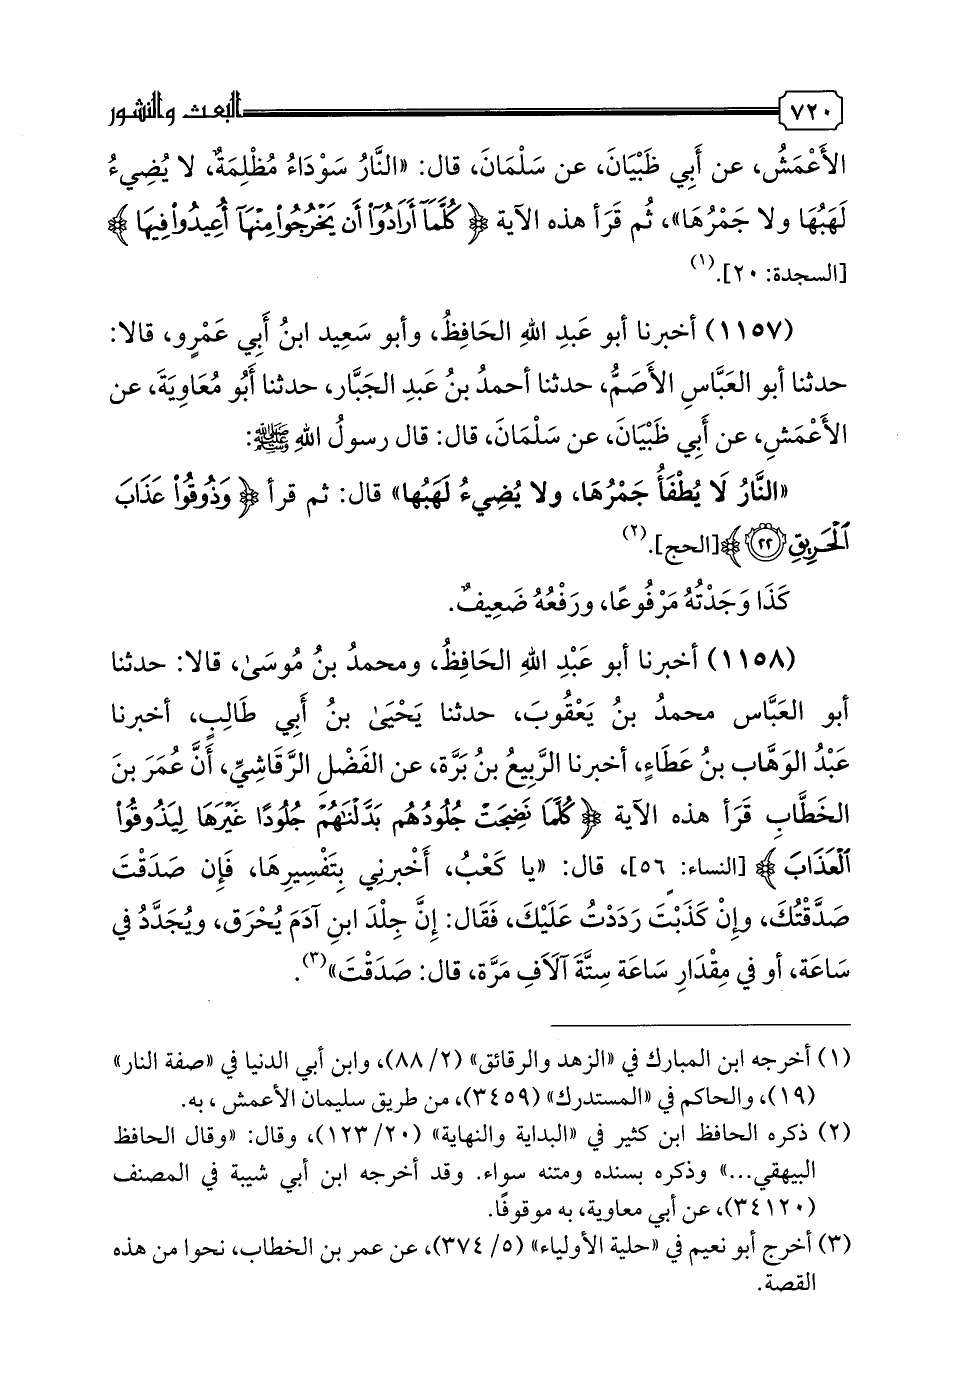 ٧٢٠ البعث والنشور
الأَعْمَشُ، عن أَبِي ظَبْيَانَ، عن سَلْمَانَ، قال: «النَّارُ سَوْدَاءُ مُظْلِمَةٌ، لا يُضِيءُ
لَهَبُهَا ولا جَمْرُهَا»، ثُم قَرَأ هذه الآية ﴿كُلَّمَآ أَرَادُوٓاْ أَن يَخْرُجُواْ مِنْهَآ أُعِيدُواْ فِيهَا﴾
[السجدة: ٢٠].(١)
(١١٥٧) أخبرنا أبو عَبدِ اللهِ الحَافِظُ، وأبو سَعِيد ابنُ أَبِي عَمْرٍو، قالا:
حدثنا أبو العَبَّاسِ الأَصَمُّ، حدثنا أحمدُ بنُ عَبدِ الجَبَّار، حدثنا أَبُو مُعَاوِيَةَ، عن
الأَعْمَشِ، عن أَبِي ظَبْيَانَ، عن سَلْمَانَ، قال: قال رسولُ اللهِ ﷺ:
«النَّارُ لَا يُطْفَأُ جَمْرُهَا، ولا يُضِيءُ لَهَبُها» قال: ثم قرأ ﴿وَذُوقُواْ عَذَابَ
ٱلْحَرِيقِ ٢٢﴾ [الحج].(٢)
كَذَا وَجَدْتُهُ مَرْفُوعًا، ورَفْعُهُ ضَعِيفٌ.
(١١٥٨) أخبرنا أبو عَبْدِ اللهِ الحَافِظُ، ومحمدُ بنُ مُوسَىٰ، قالا: حدثنا
أبو العَبَّاس محمدُ بنُ يَعْقُوبَ، حدثنا يَحْيَىٰ بنُ أَبِي طَالِبٍ، أخبرنا
عَبْدُ الوَهَّاب بنُ عَطَاءٍ، أخبرنا الرَّبِيعُ بنُ بَرَّة، عن الفَضْلِ الرَّقَاشِيِّ، أنَّ عُمَرَ بنَ
الخَطَّابِ قَرَأَ هذه الآية ﴿كُلَّمَا نَضِجَتْ جُلُودُهُم بَدَّلْنَٰهُمْ جُلُودًا غَيْرَهَا لِيَذُوقُواْ
ٱلْعَذَابَ﴾ [النساء: ٥٦]، قال: «يا كَعْبُ، أَخْبِرنِي بِتَفْسِيرِهَا، فَإِن صَدَقْتَ
صَدَّقْتُكَ، وإِنْ كَذَبْتَ رَدَدْتُ عَلَيْكَ، فَقَال: إنَّ جِلْدَ ابنِ آدَمَ يُحْرَق، ويُجَدَّدُ في
سَاعَة، أو في مِقْدَارِ سَاعَة سِتَّةَ آلَافِ مَرَّة، قال: صَدَقْتَ»(٣).
(١) أخرجه ابن المبارك في «الزهد والرقائق» (٢/ ٨٨)، وابن أبي الدنيا في «صفة النار»
(١٩)، والحاكم في «المستدرك» (٣٤٥٩)، من طريق سليمان الأعمش ، به.
(٢) ذكره الحافظ ابن كثير في «البداية والنهاية» (٢٠/ ١٢٣)، وقال: «وقال الحافظ
البيهقي...» وذكره بسنده ومتنه سواء. وقد أخرجه ابن أبي شيبة في المصنف
(٣٤١٢٠)، عن أبي معاوية، به موقوفًا.
(٣) أخرج أبو نعيم في «حلية الأولياء» (٥/ ٣٧٤)، عن عمر بن الخطاب، نحوا من هذه
القصة.